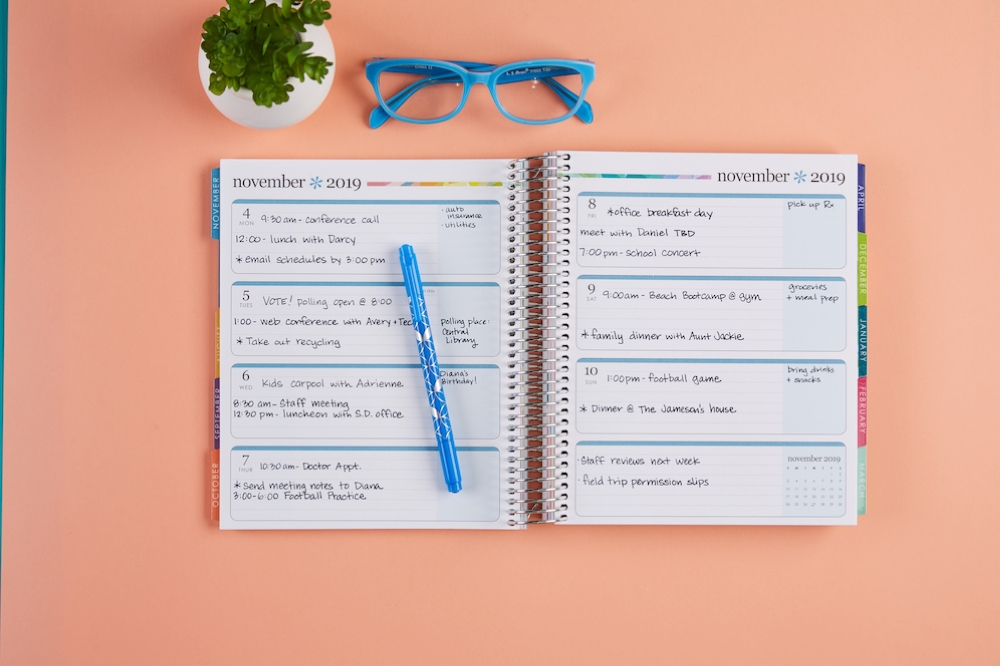 november * 2019
4
MON
9:30 am - conference call
12:00 - lunch with Darcy
* email schedules by 3:00 pm
· auto
insurance
· utilities
5
TUES
VOTE! polling open @ 8:00
1:00 - web conference with Avery + Tech
* Take out recycling
polling place:
Central
Library
6
WED
Kids carpool with Adrienne
8:30 am - Staff meeting
12:30 pm - luncheon with S.D. office
Diana's
Birthday!
7
THUR
10:30 am - Doctor Appt.
* send meeting notes to Diana
3:00-6:00 Football Practice
november * 2019
8
FRI
*office breakfast day
meet with Daniel TBD
7:00 pm - school concert
pick up Rx
9
SAT
9:00am - Beach Bootcamp @ gym
* family dinner with Aunt Jackie
groceries
+ meal prep
10
SUN
1:00pm - football game
* Dinner @ The Jameson's house
bring drinks
+ snacks
· Staff reviews next week
· field trip permission slips
november 2019
NOVEMBER
SEPTEMBER
OCTOBER
APRIL
DECEMBER
JANUARY
FEBRUARY
MARCH